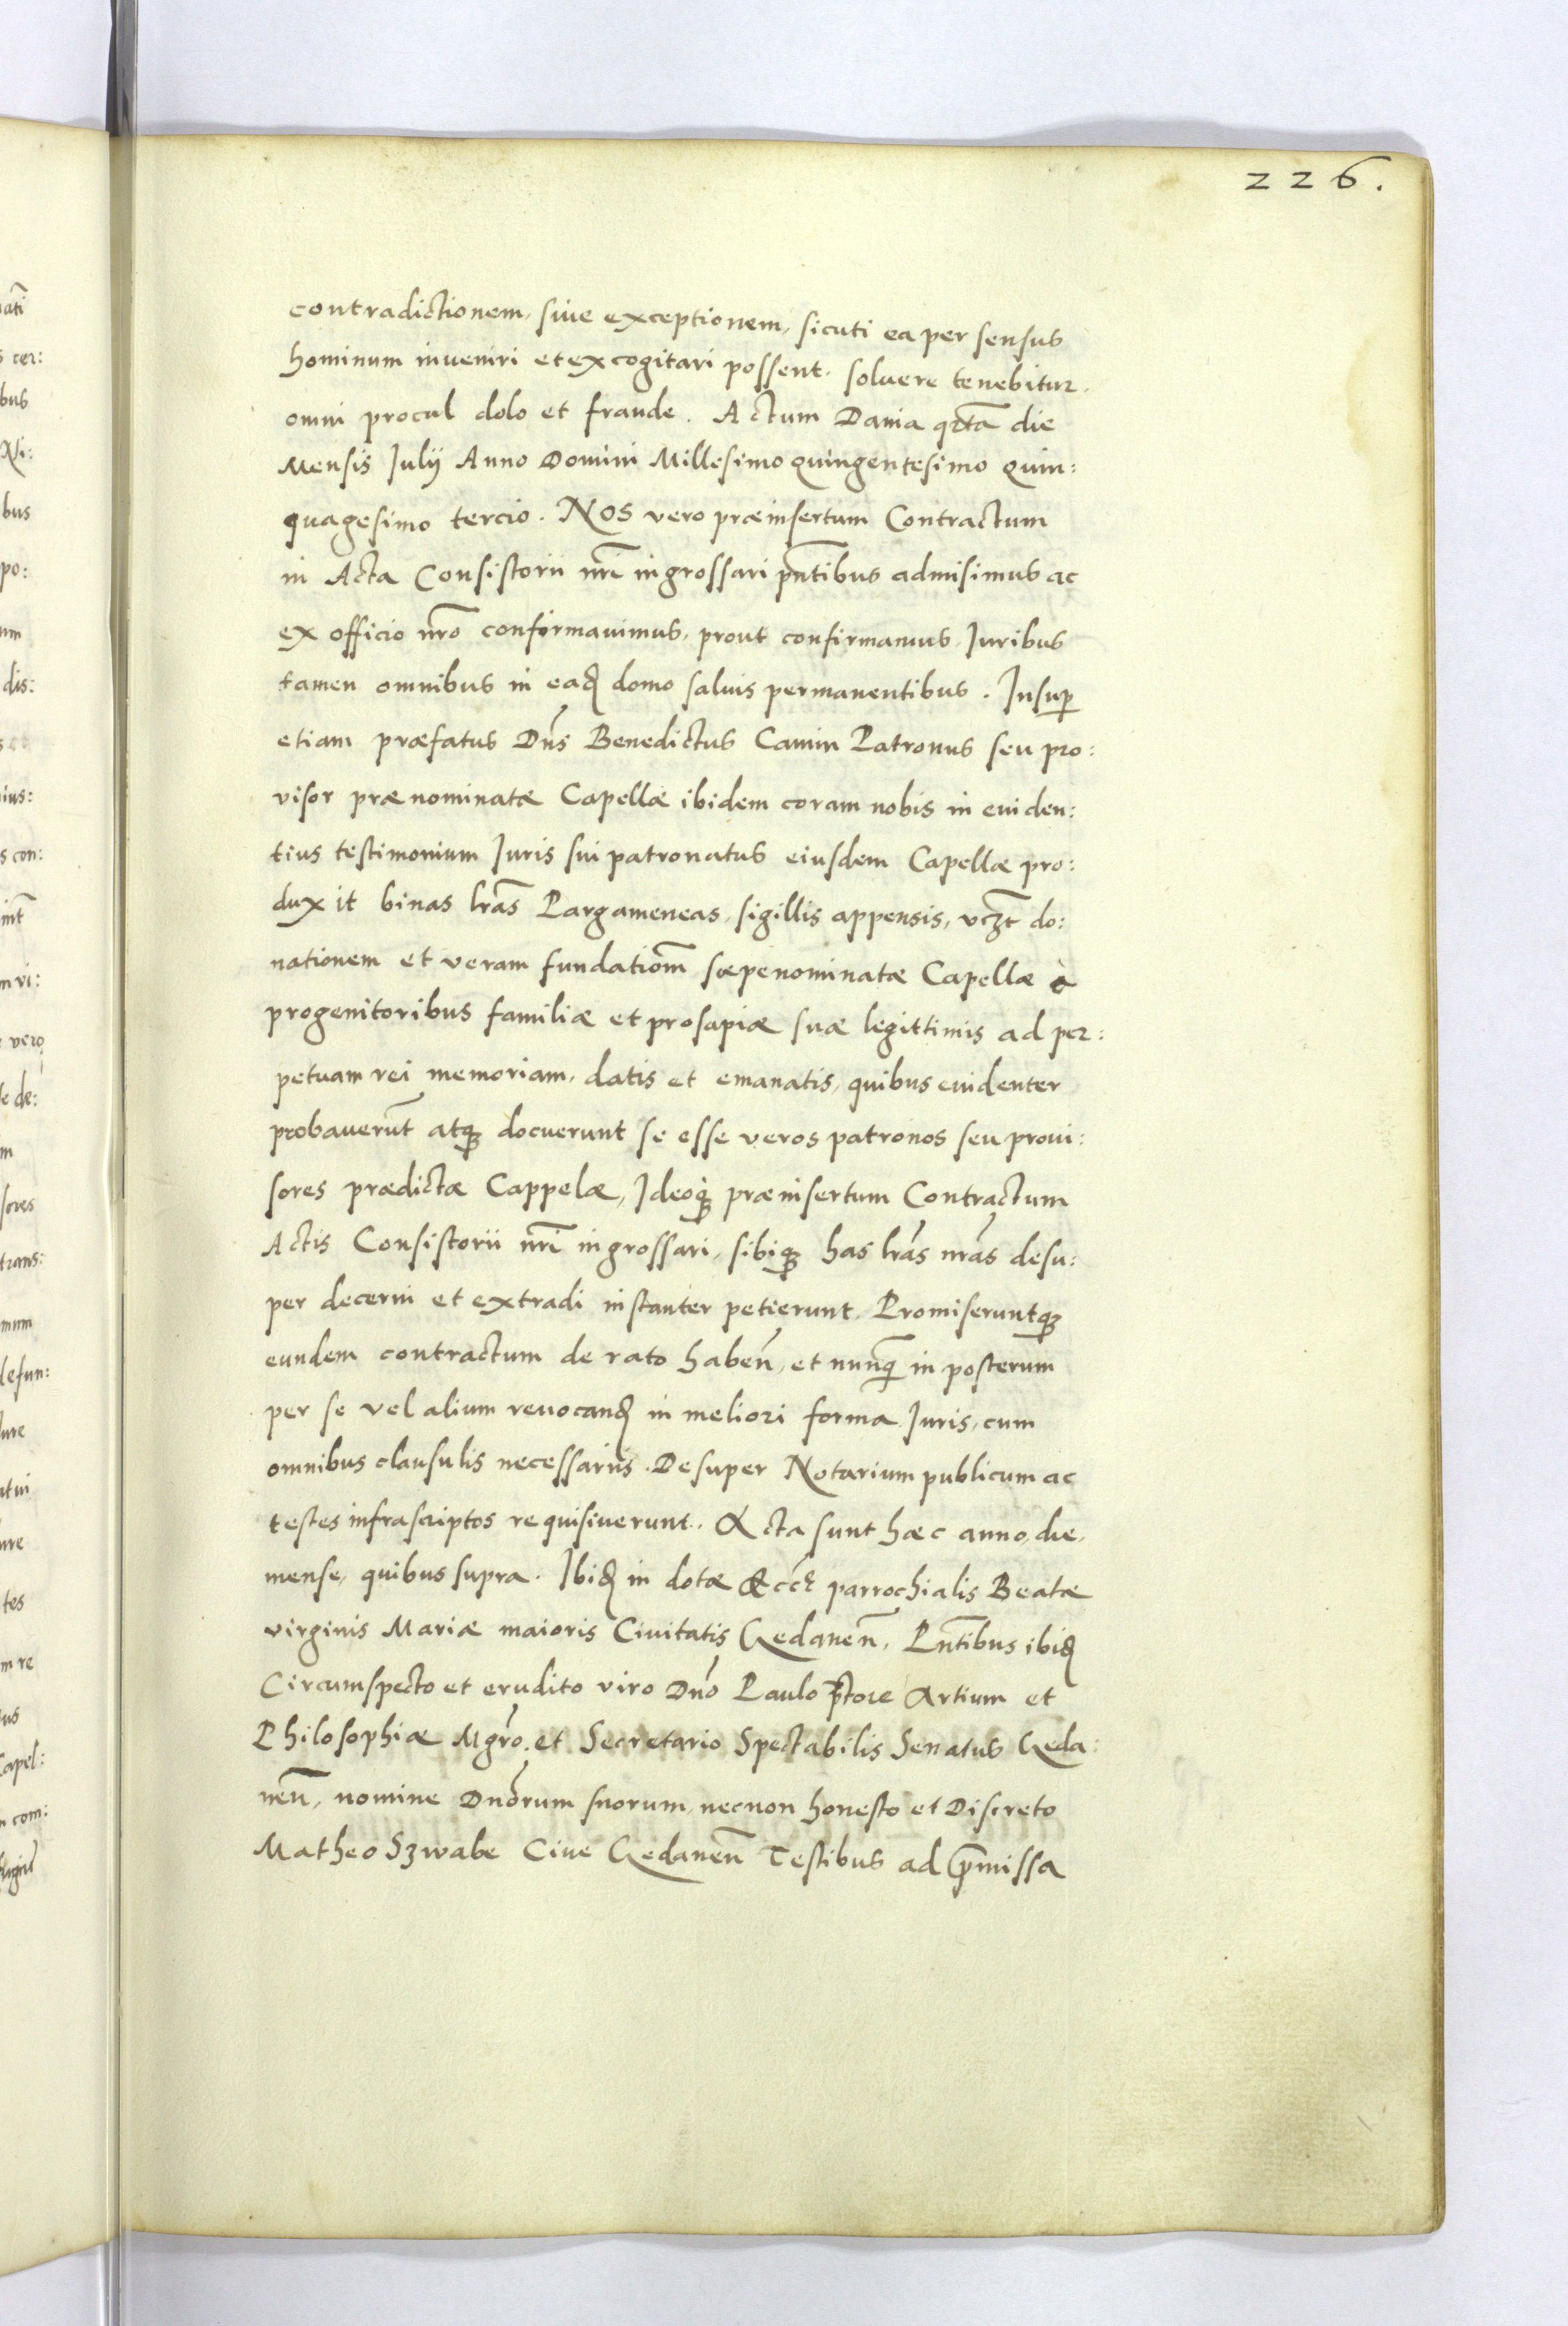 226.
contradictionem, siue exceptionem, sicuti ea per sensus
hominum inveniri et excogitari possent, soluere tenebitur.
omni procul dolo et fraude. Actum Dania qcta die
Mensis Julij Anno Domini Millesimo quingentesimo quin:
quagesimo tercio. NOS vero præinsertum Contractum
in Acta Consistorii nri̅ ingrossari pn̅tibus admisimus ac
ex officio nr̅o conformauimus, prout confirmamus, Juribus
tamen omnibus in eaꝺ domo saluis permanentibus. Insup̱
etiam præfatus Dn̅s Benedictus Camin Patronus seu pro:
visor prænominatæ Capellæ ibidem coram nobis in euiden:
tius testimonium Juris sui patronatus eiusdem Capellæ pro:
duxit binas lr̅as Pargameneas, sigillis appensis, vcꝫt do:
nationem et veram fundatiom̅ sæpenominatæ Capellæ à
progenitoribus familiæ et prosapiæ suæ legittimis ad per:
petuam rei memoriam, datis et emanatis, quibus euidenter
probauerut̅ atqꝫ docuerunt se esse veros patronos seu proui:
sores prædictæ Cappelæ, Ideoqꝫ præinsertum Contractum
Actis Consistorii nri̅ ingrossari, sibiqꝫ has lr̅as nr̅as desu:
per decerni et extradi instanter petierunt, Promiseruntqꝫ
eundem contractum de rato haben̅, et nunq̅ in posterum
per se vel alium reuocanꝺ in meliori forma Juris, cum
omnibus clausulis necessariis. Desuper Notarium publicum ac
testes infrascriptos requisiuerunt. Acta sunt hæc anno, die,
mense, quibus supra. Ibiꝺ in dotæ Eccꝉ parrochialis Beatæ
virginis Mariæ maioris Ciuitatis Gedanen̅, Pn̅tibus ibiꝺ
Circumspecto et erudito viro Dn̅o Paulo p̅tore Artium et
Philosophiæ Mgr̅o, et Secretario Spectabilis Senatus Geda:
nen̅, nomine Dn̅orum suorum, necnon honesto et Discreto
Matheo Szwabe Ciue Gedanen̅ Testibus ad p̅missa